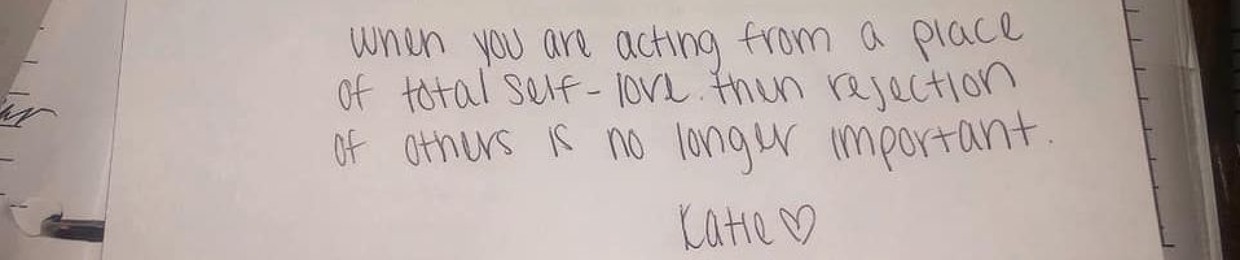 when you are acting from a place
of total self-love. then rejection
of others is no longer important.
Katie ♡